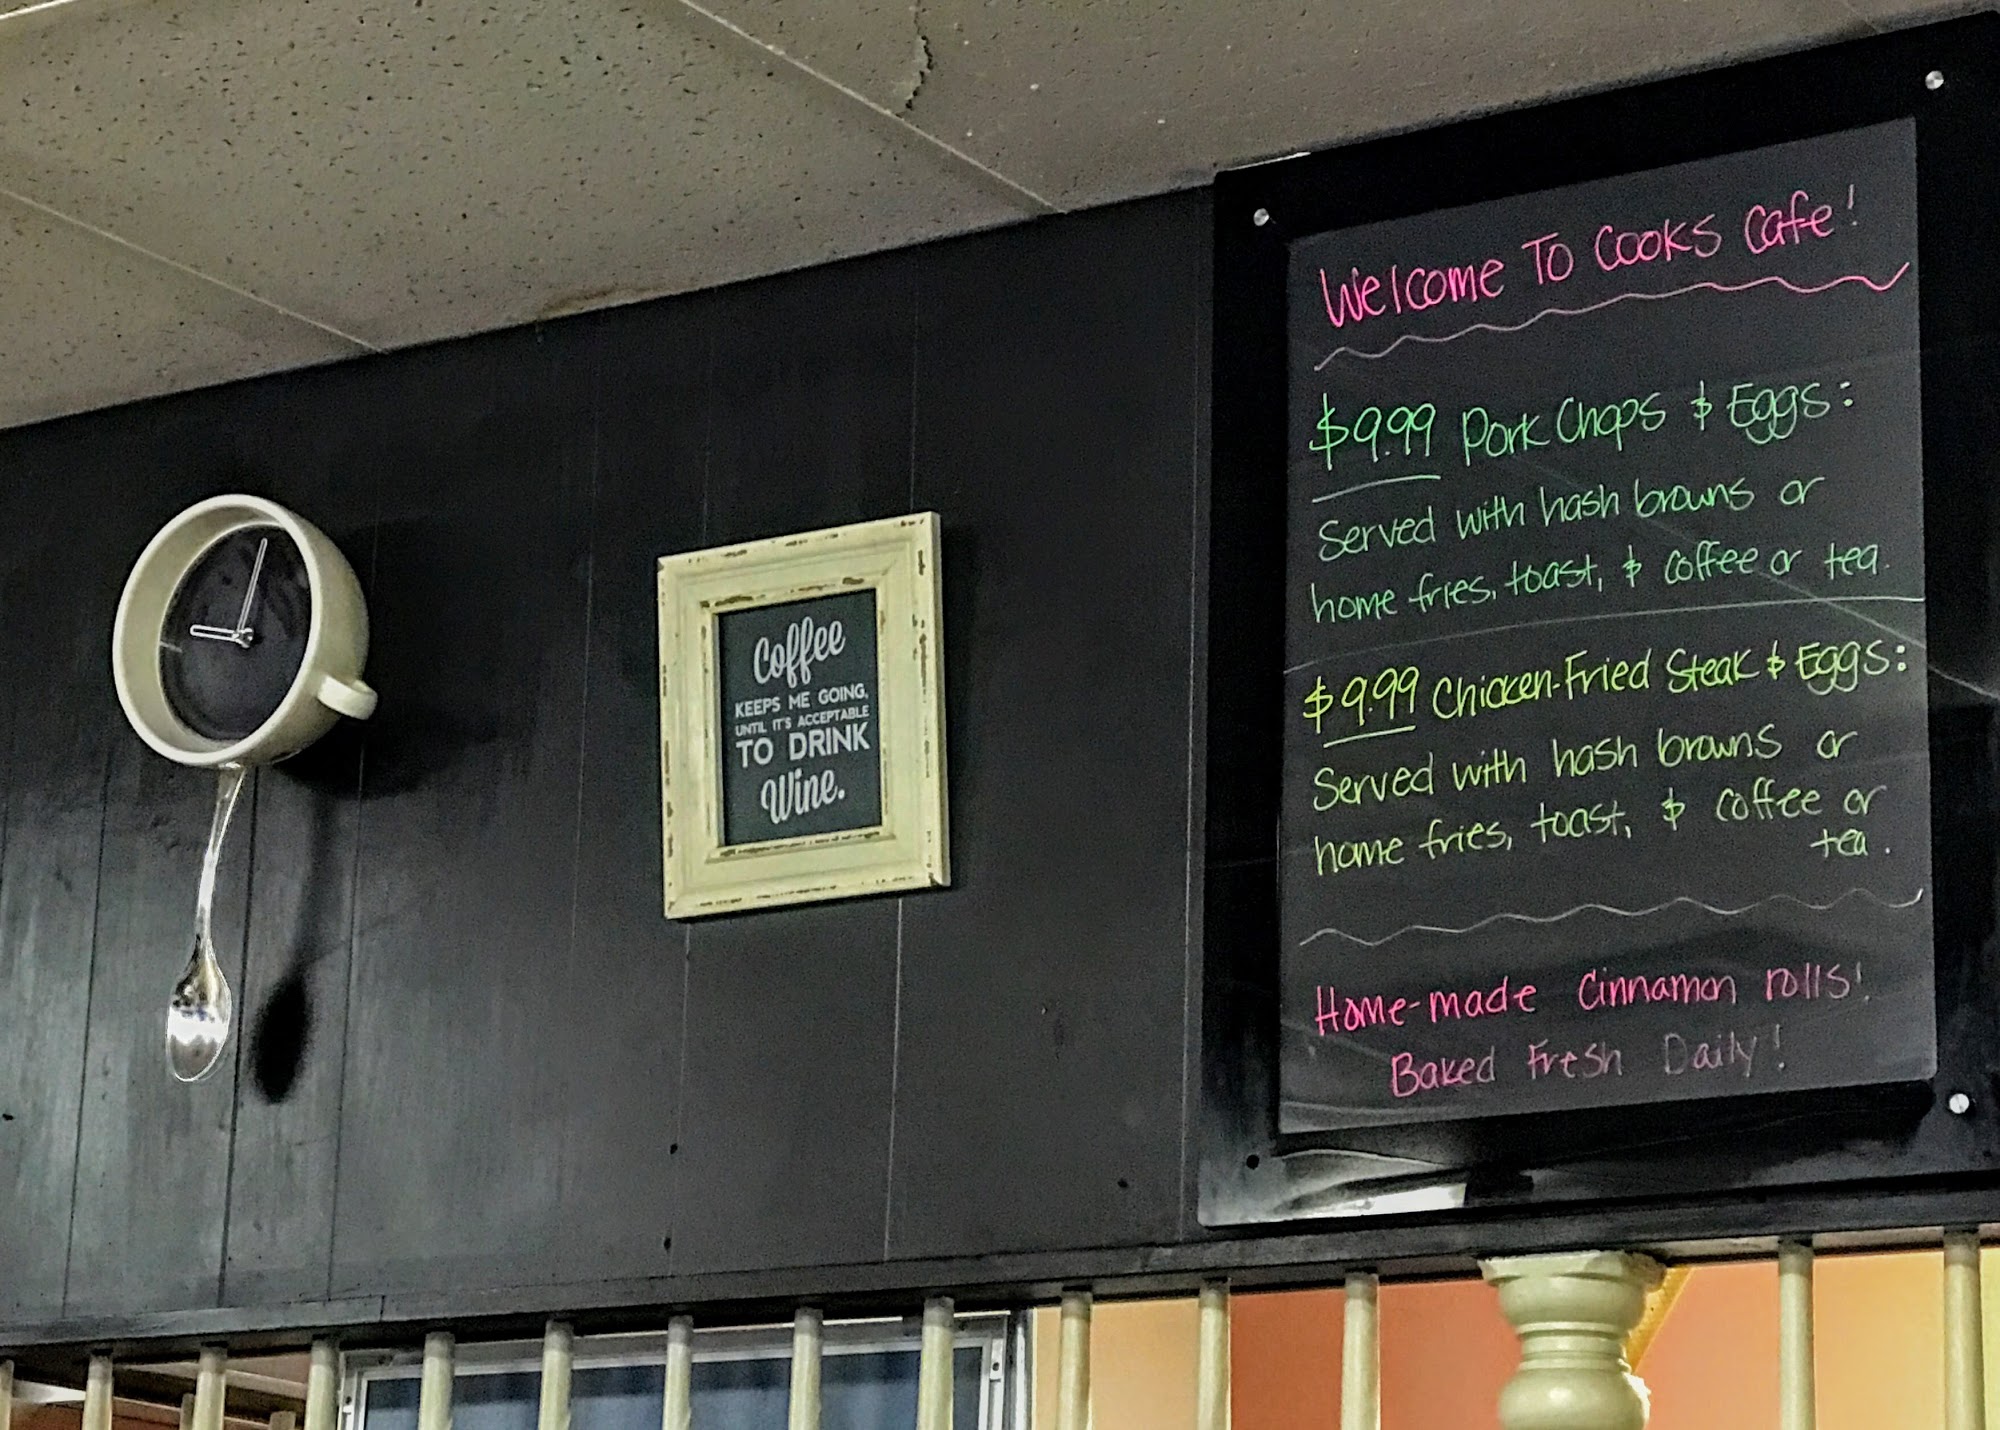 Coffee
KEEPS ME GOING,
UNTIL IT'S ACCEPTABLE
TO DRINK
Wine.
Welcome To Cooks Cafe!
$9.99 Pork Chops & Eggs:
Served with hash browns or
home fries, toast, & coffee or tea.
$9.99 Chicken-Fried Steak & Eggs:
Served with hash browns or
home fries, toast, & coffee or
tea.
Home-made Cinnamon rolls!
Baked Fresh Daily!